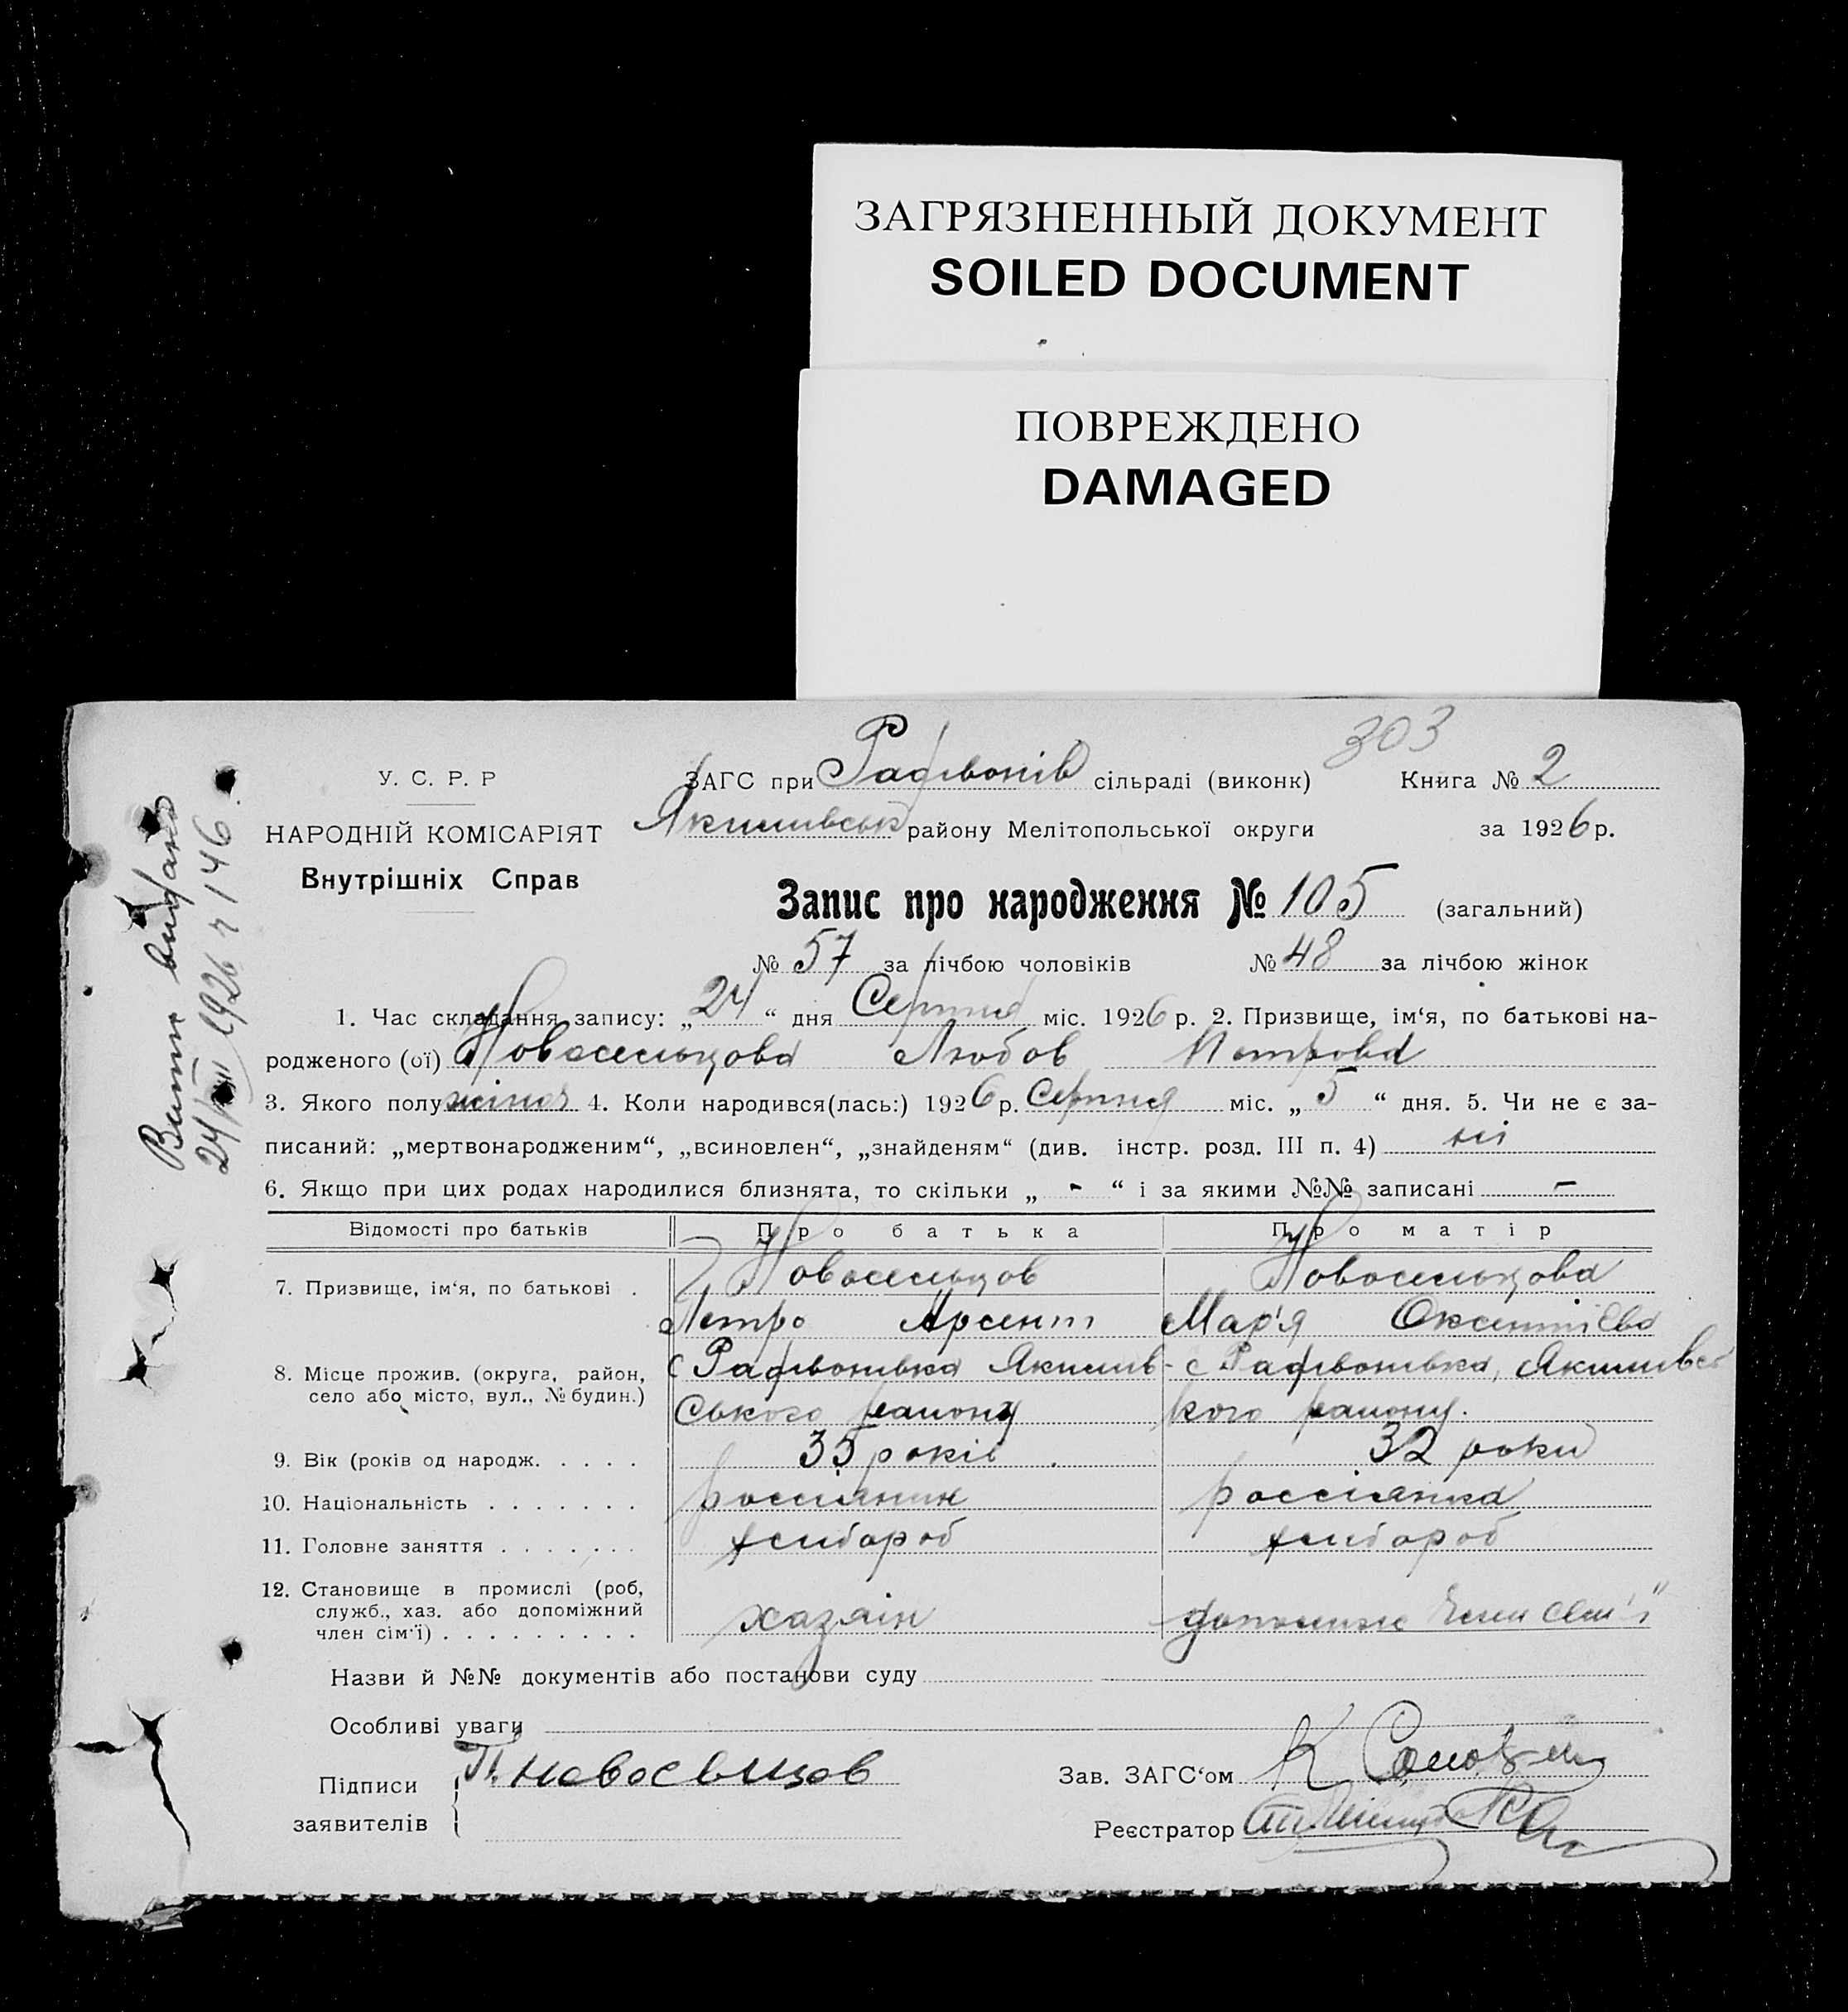 ЗАГРЯЗНЕННЫЙ ДОКУМЕНТ
SOILED DOCUMENT
ПОВРЕЖДЕНО
DAMAGED
303
У. С. Р. Р
НАРОДНІЙ КОМІСАРІЯТ
Внутрішніх Справ
ЗАГС при Радівонів сільраді (виконк) Книга № 2
Якимівськ району Мелітопольської округи за 1926 р.
Запис про народження № 105 (загальний)
№ 57 за лічбою чоловіків № 48 за лічбою жінок
1. Час складання запису: „24“ дня Серпня міс. 1926 р. 2. Призвище, ім‘я, по батькові на-
родженого (ої) Новосельцова Любов Петрова
3. Якого полу жіноч 4. Коли народився(лась:) 1926 р. Серпня міс. „5“ дня. 5. Чи не є за-
писаний: „мертвонародженим“, „всиновлен“, „знайденям“ (див. інстр. розд. III п. 4) ні
6. Якщо при цих родах народилися близнята, то скільки „-“ і за якими №№ записані -
Відомості про батьків Про батька Про матір
7. Призвище, ім‘я, по батькові . Новосельцов Новосельцова
Петро Арсент Мар'я Оксентієва
8. Місце прожив. (округа, район,
село або місто, вул., № будин.)
с Радівонівка Якимів-
ського району
с Радівонівка, Якимівсь
кого району.
9. Вік (років од народж. . . . . 35 років 32 роки
10. Національність . . . . . . . россіянин россіянка
11. Головне заняття . . . . . . . хлібороб хлібороб
12. Становище в промислі (роб,
служб., хаз. або допоміжний
член сім‘ї) . . . . . . . . . хазяїн допоміжн член сем'ї
Назви й №№ документів або постанови суду
Особливі уваги
Підписи
заявителів
П. Новосвцов
Зав. ЗАГС‘ом К
Реєстратор
Витяг видано
24/VIII 1926 р 146